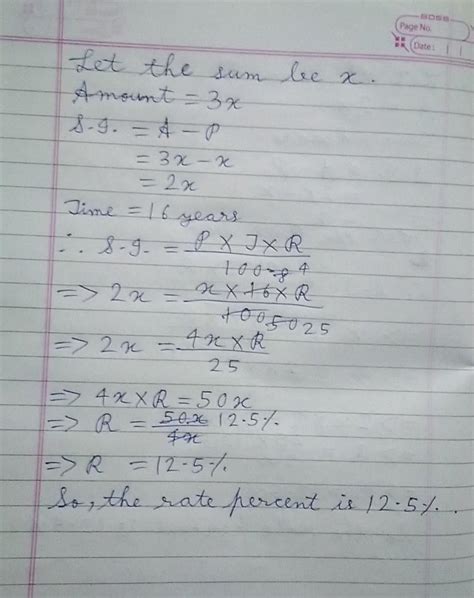 SDSB
Page No.
Date:
Let the sum be x.
Amount = 3x
S.I. = A - P
= 3x - x
= 2x
Time = 16 years
∴ S.I. = P × T × R
100 8 4
=> 2x = x × 16 × R
100 50 25
=> 2x = 4x × R
25
=> 4x × R = 50x
=> R = 50x 12.5%
4x
=> R = 12.5%
So, the rate percent is 12.5%.